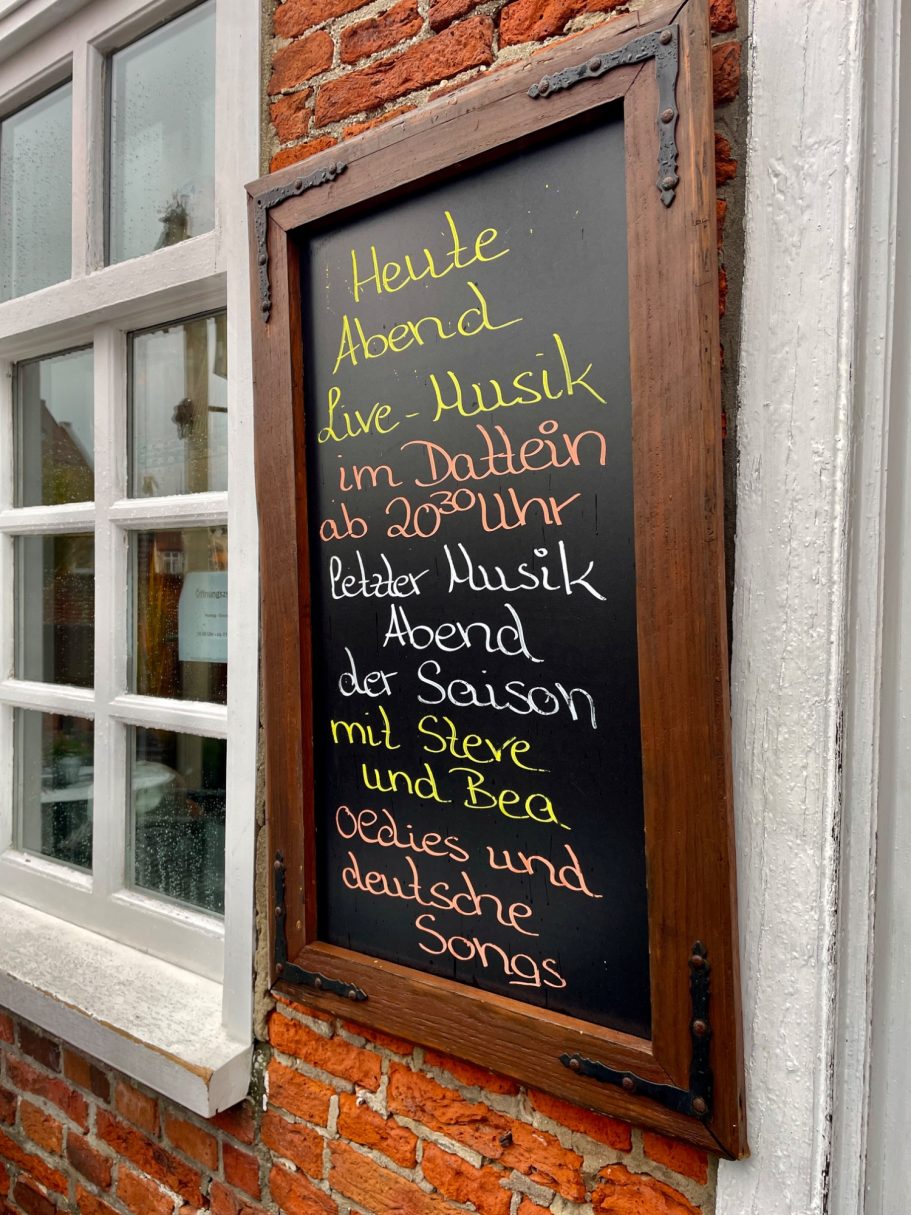 Heute
Abend
Live-Musik
im Dattein
ab 20³⁰ Uhr
letzter Musik
Abend
der Saison
mit Steve
und Bea
Oedies und
deutsche
Songs